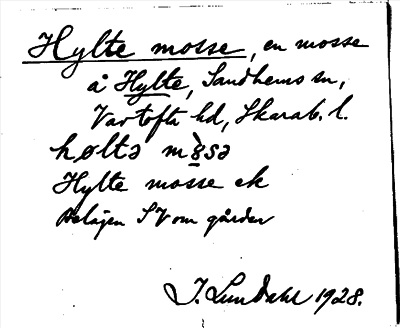 Hylte mosse, en mosse
å Hylte, Sandhems sn,
Vartofta hd, Skarab. l.
høltə mo̤̊sə
Hylte mosse ek
Belägen SV om gården
J. Lundahl 1928.